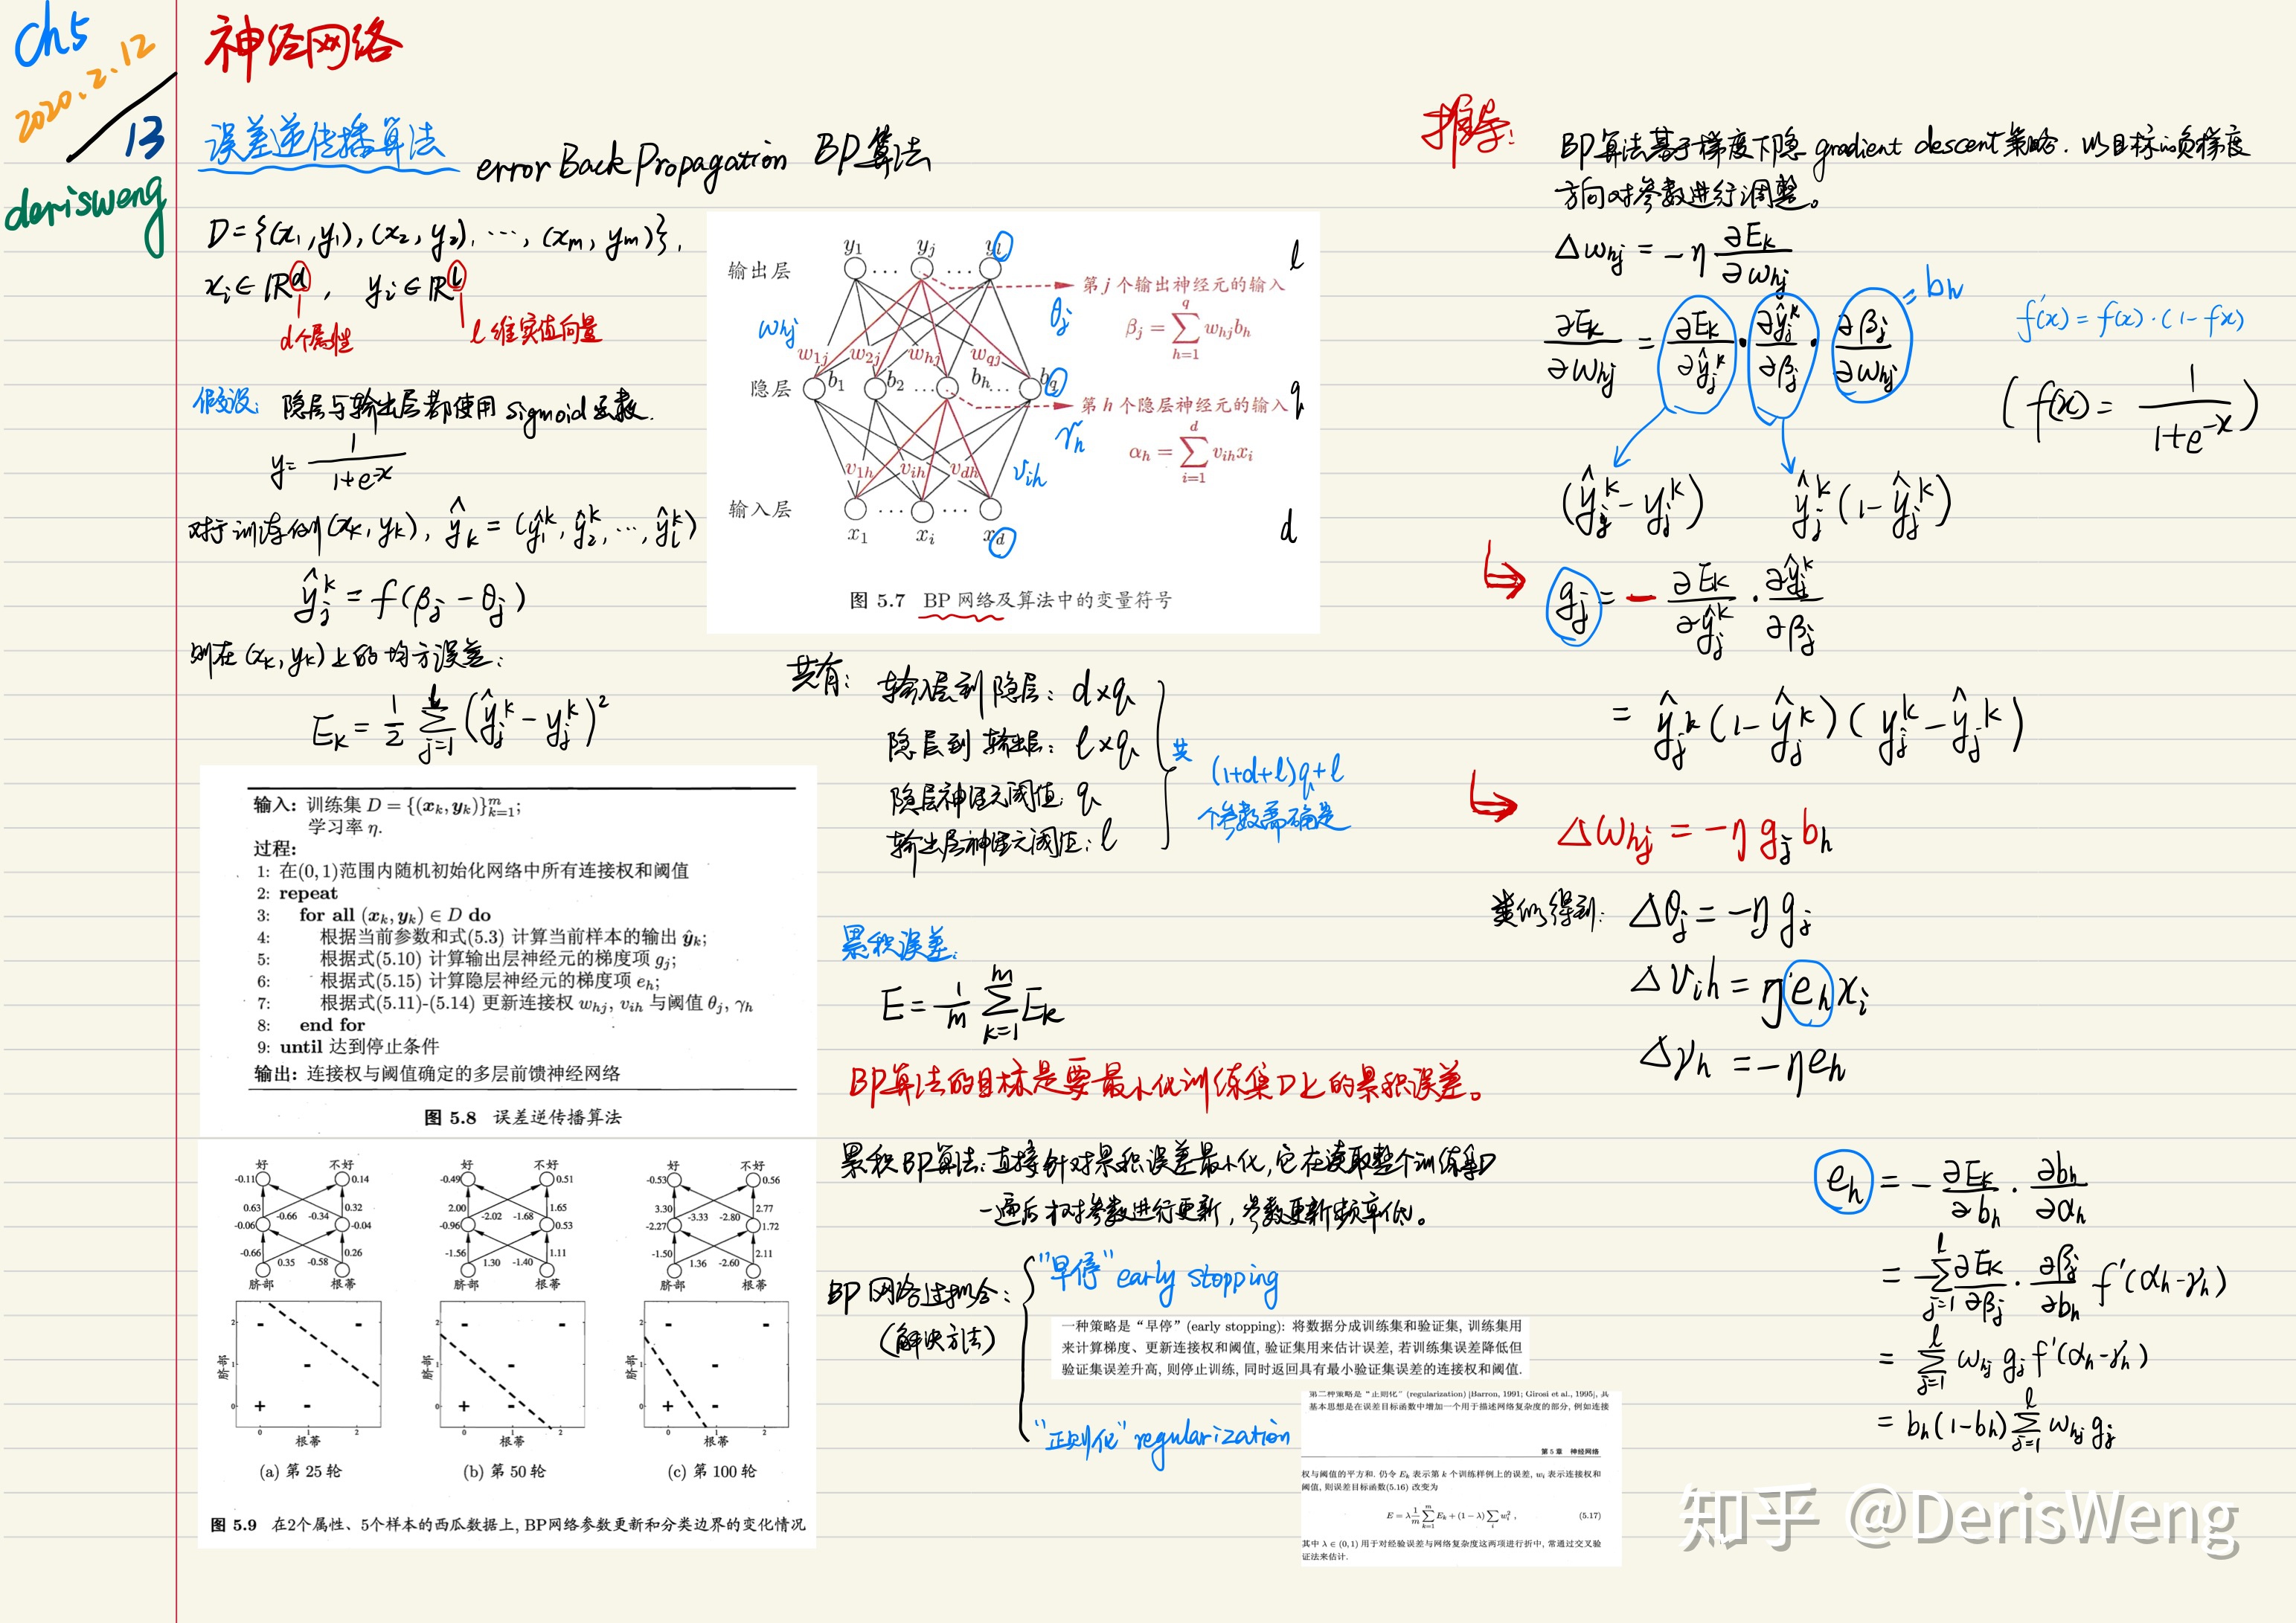 ch5
2020.2.12
13
derisweng
神经网络
误差逆传播算法 error BackPropagation BP算法
D={(x₁,y₁),(x₂,y₂),…,(xₘ,yₘ)},
xᵢ∈ℝᵈ, yᵢ∈ℝˡ
d个属性
l维实值向量
假设: 隐层与输出层都使用 sigmoid 函数.
y = 1/(1+e^-x)
对于训练例(x_k,y_k), ŷ_k = (ŷ_1^k, ŷ_2^k, …, ŷ_l^k)
ŷ_j^k = f(β_j - θ_j)
则在(x_k,y_k)上的均方误差:
E_k = 1/2 Σ_{j=1}^{l} (ŷ_j^k - y_j^k)²
输入: 训练集 D = {(x_k, y_k)}_{k=1}^m;
学习率 η.
过程:
1: 在(0,1)范围内随机初始化网络中所有连接权和阈值
2: repeat
3: for all (x_k, y_k) ∈ D do
4: 根据当前参数和式(5.3) 计算当前样本的输出 ŷ_k;
5: 根据式(5.10) 计算输出层神经元的梯度项 g_j;
6: 根据式(5.15) 计算隐层神经元的梯度项 e_h;
7: 根据式(5.11)-(5.14) 更新连接权 w_hj, v_ih 与阈值 θ_j, γ_h
8: end for
9: until 达到停止条件
输出: 连接权与阈值确定的多层前馈神经网络
图 5.8 误差逆传播算法
好 不好
-0.11 0.14
0.63 -0.66 -0.34 0.32
-0.06 -0.04
-0.66 0.35 -0.58 0.26
脐部 根蒂
好 不好
-0.49 0.51
2.00 -2.02 -1.68 1.65
-0.96 0.53
-1.56 1.30 -1.40 1.11
脐部 根蒂
好 不好
-0.53 0.56
3.30 -3.33 -2.80 2.77
-2.27 1.72
-1.50 1.36 -2.60 2.11
脐部 根蒂
脐部 2 1 0
0 1 2
根蒂
脐部 2 1 0
0 1 2
根蒂
脐部 2 1 0
0 1 2
根蒂
(a) 第 25 轮
(b) 第 50 轮
(c) 第 100 轮
图 5.9 在2个属性、5个样本的西瓜数据上, BP网络参数更新和分类边界的变化情况
y₁ y_j y_l
输出层 … … l
第 j 个输出神经元的输入
θ_j
β_j = Σ_{h=1}^{q} w_hj b_h
w_hj
w_1j w_2j w_hj w_qj
隐层 b₁ b₂ … b_h … b_q q
第 h 个隐层神经元的输入
γ_h
α_h = Σ_{i=1}^{d} v_ih x_i
v_1h v_ih v_dh v_ih
输入层 … … d
x₁ x_i x_d
图 5.7 BP 网络及算法中的变量符号
共有: 输入层到隐层: d×q
隐层到输出层: l×q
隐层神经元阈值: q
输出层神经元阈值: l
共 (1+d+l)q+l
个参数需确定
累积误差:
E = 1/m Σ_{k=1}^{m} E_k
BP算法的目标是要最小化训练集D上的累积误差。
累积BP算法: 直接针对累积误差最小化,它在读取整个训练集D
一遍后才对参数进行更新, 参数更新频率低。
BP网络过拟合:
(解决方法)
"早停" early stopping
一种策略是“早停” (early stopping): 将数据分成训练集和验证集, 训练集用
来计算梯度、更新连接权和阈值, 验证集用来估计误差, 若训练集误差降低但
验证集误差升高, 则停止训练, 同时返回具有最小验证集误差的连接权和阈值.
"正则化" regularization
第二种策略是“正则化” (regularization) [Barron, 1991; Girosi et al., 1995], 其
基本思想是在误差目标函数中增加一个用于描述网络复杂度的部分, 例如连接
第 5 章 神经网络
权与阈值的平方和. 仍令 E_k 表示第 k 个训练样例上的误差, w_i 表示连接权和
阈值, 则误差目标函数(5.16) 改变为
E = λ 1/m Σ_{k=1}^{m} E_k + (1 − λ) Σ_i w_i² , (5.17)
其中 λ ∈ (0,1) 用于对经验误差与网络复杂度这两项进行折中, 常通过交叉验
证法来估计.
推导:
BP算法基于梯度下降 gradient descent 策略. 以目标的负梯度
方向对参数进行调整。
Δw_hj = -η ∂E_k/∂w_hj
∂E_k/∂w_hj = ∂E_k/∂ŷ_j^k · ∂ŷ_j^k/∂β_j · ∂β_j/∂w_hj = b_h
f'(x) = f(x)·(1-fx)
(f(x) = 1/(1+e^-x))
(ŷ_j^k - y_j^k) ŷ_j^k(1-ŷ_j^k)
g_j = - ∂E_k/∂ŷ_j^k · ∂ŷ_j^k/∂β_j
= ŷ_j^k(1-ŷ_j^k)(y_j^k-ŷ_j^k)
Δw_hj = -η g_j b_h
类似得到: Δθ_j = -η g_j
Δv_ih = η e_h x_i
Δγ_h = -η e_h
e_h = - ∂E_k/∂b_h · ∂b_h/∂α_h
= -Σ_{j=1}^{l} ∂E_k/∂β_j · ∂β_j/∂b_h f'(α_h-γ_h)
= Σ_{j=1}^{l} w_hj g_j f'(α_h-γ_h)
= b_h(1-b_h) Σ_{j=1}^{l} w_hj g_j
知乎 @DerisWeng